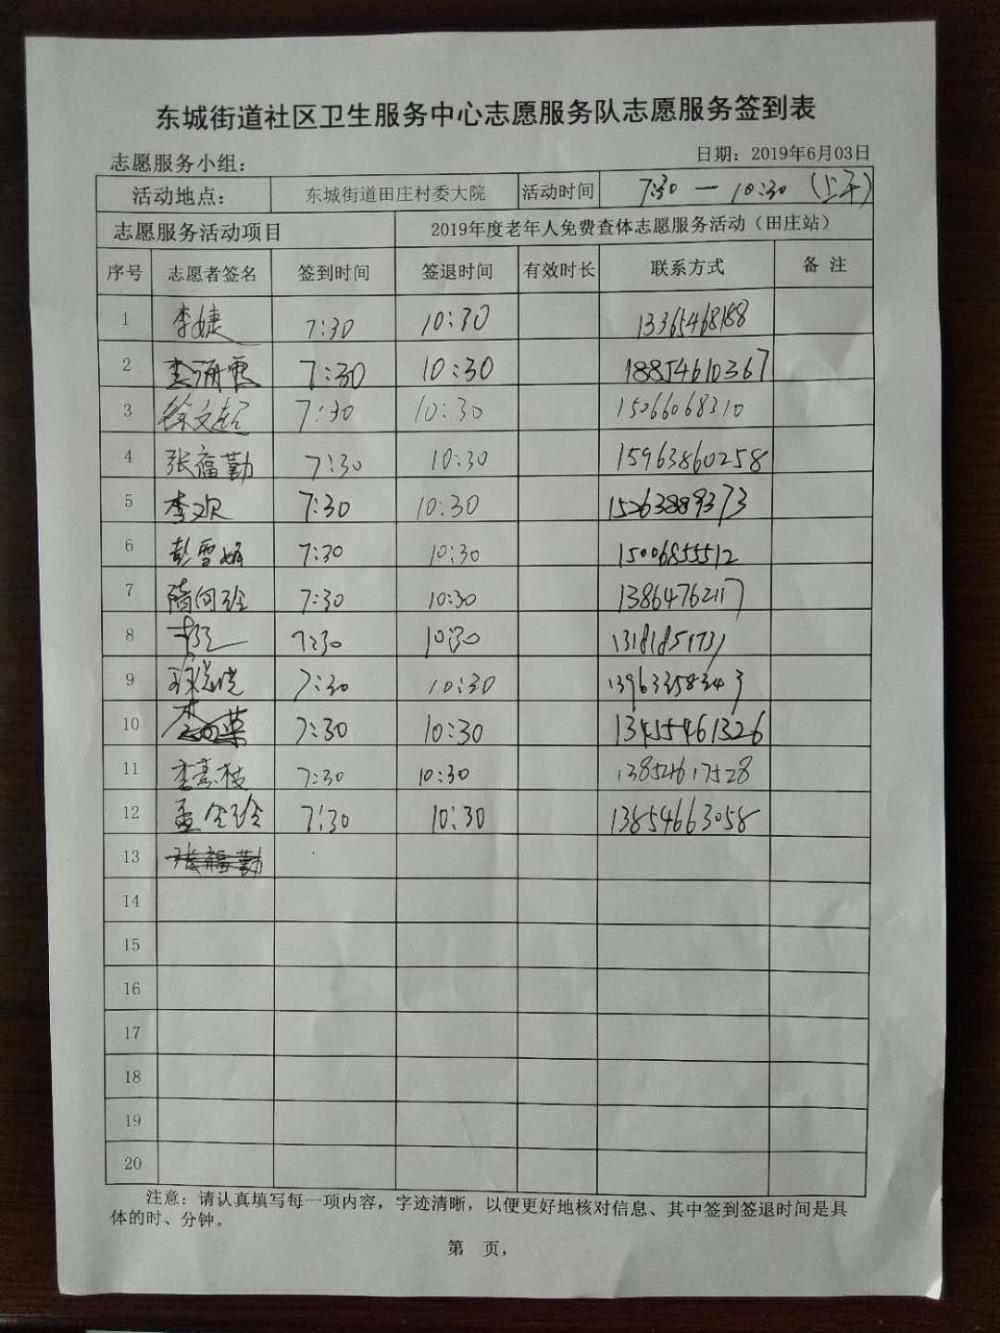 东城街道社区卫生服务中心志愿服务队志愿服务签到表
志愿服务小组： 日期：2019年6月03日
活动地点： 东城街道田庄村委大院 活动时间 7:30 — 10:30 (上午)
志愿服务活动项目 2019年度老年人免费查体志愿服务活动（田庄站）
序号 志愿者签名 签到时间 签退时间 有效时长 联系方式 备 注
1 李婕 7:30 10:30 13365468188
2 7:30 10:30 18854610367
3 徐文超 7:30 10:30 15266068310
4 张福勤 7:30 10:30 15963860258
5 李欢 7:30 10:30 15263889373
6 彭雪娟 7:30 10:30 15006855512
7 隋向玲 7:30 10:30 13864762117
8 7:30 10:30 13181851731
9 7:30 10:30
10 7:30 10:30 13455461326
11 李素枝 7:30 10:30
12 孟令玲 7:30 10:30 13854663058
13 张福勤
14
15
16
17
18
19
20
注意：请认真填写每一项内容，字迹清晰，以便更好地核对信息、其中签到签退时间是具
体的时、分钟。
第 页，